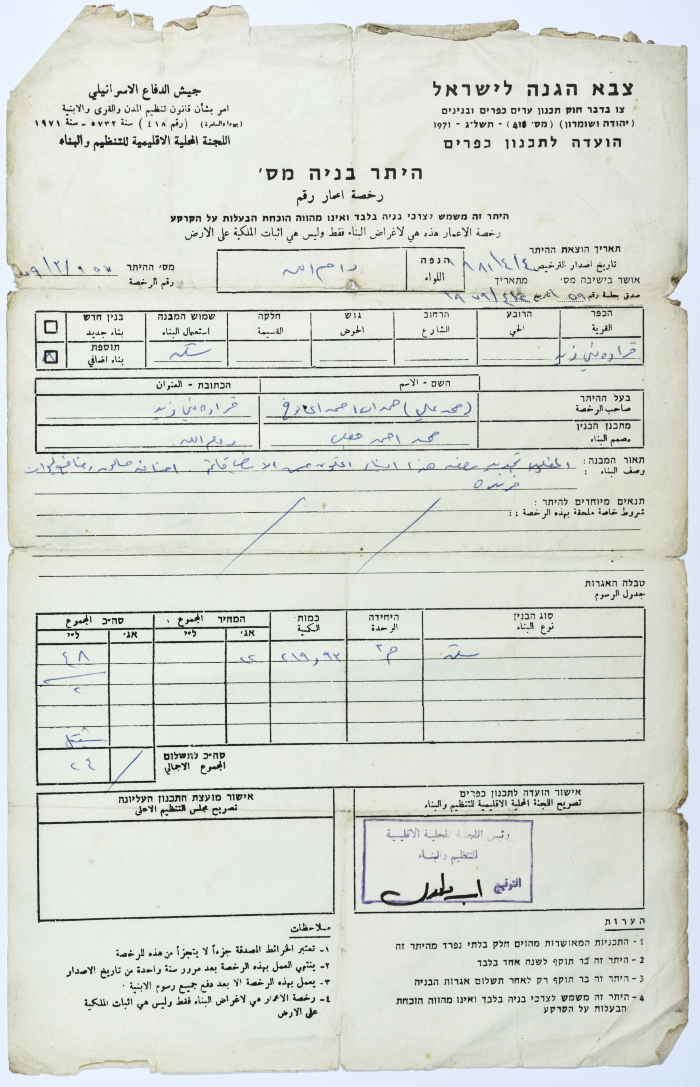 צבא הגנה לישראל
צו בדבר חוק תכנון ערים כפרים ובנינים
(יהודה ושומרון) (מס׳ 418) - תשל״ג - 1971
הועדה לתכנון כפרים
جيش الدفاع الاسرائيلي
امر بشأن قانون تنظيم المدن والقرى والابنية
(يهودا والسامرة) (رقم ٤١٨) سنة ٥٧٣٢ - سنة ١٩٧١
اللجنة المحلية الاقليمية للتنظيم والبناء
היתר בניה מס׳
رخصة اعمار رقم
היתר זה משמש לצרכי בניה בלבד ואינו מהווה הוכחת הבעלות על הקרקע
رخصة الاعمار هذه هي لاغراض البناء فقط وليس هي اثبات الملكية على الارض
תאריך הוצאת ההיתר
تاريخ اصدار الترخيص ٨١/٤/٤
הנפה
اللواء
رام الله
מס׳ ההיתר
رقم الرخصة
אושר בישיבה מס׳ מתאריך
صدق بجلسة رقم ٥٩ تاريخ
הכפר הרובע הרחוב גוש חלקה שמוש המבנה בנין חדש
القرية الحي الشارع الحوض القسيمة استعمال البناء بناء جديد
קراوة بني زيد سكن תוספת
بناء اضافي
השם - الاسم הכתובת - العنوان
בעל ההיתר
صاحب الرخصة
قراوة بني زيد
מתכנן הבנין
مصمم البناء
محمد احمد رام الله
תאור המבנה :
وصف البناء :
תנאים מיוחדים להיתר :
شروط خاصة ملحقة بهذه الرخصة ::
טבלה האגרות
جدول الرسوم
סוג הבנין היחידה כמות המחיר المجموع סה״כ المجموع
نوع البناء الوحدة الكمية אג׳ ל״י אג׳ ל״י
سكن م٢ ٢١٩,٩٣ ٢٢ ٤٨
٢
شيكل
סה״כ לתשלום
المجموع الاجمالي
٢٤
אישור הועדה לתכנון כפרים
تصريح اللجنة المحلية الاقليمية للتنظيم والبناء
אישור מועצת התכנון העליונה
تصريح مجلس التنظيم الاعلى
رئيس اللجنة المحلية الاقليمية
للتنظيم والبناء
التوقيع
הערות
1 - התכניות המאושרות מהוים חלק בלתי נפרד מהיתר זה
2 - היתר זה בר תוקף לשנה אחד בלבד
3 - היתר זה בר תוקף רק לאחר תשלום אגרות הבניה
4 - היתר זה משמש לצרכי בניה בלבד ואינו מהווה הוכחת
הבעלות על הקרקע
ملاحظات
١- تعتبر الخرائط المصدقة جزءاً لا يتجزأ من هذه للرخصة
٢- ينتهي العمل بهذه الرخصة بعد مرور سنة واحدة من تاريخ الاصدار
٣- يعمل بهذه الرخصة الا بعد دفع جميع رسوم الابنية ·
٤- رخصة الاعمار هي لاغراض البناء فقط وليس هي اثبات الملكية
على الارض